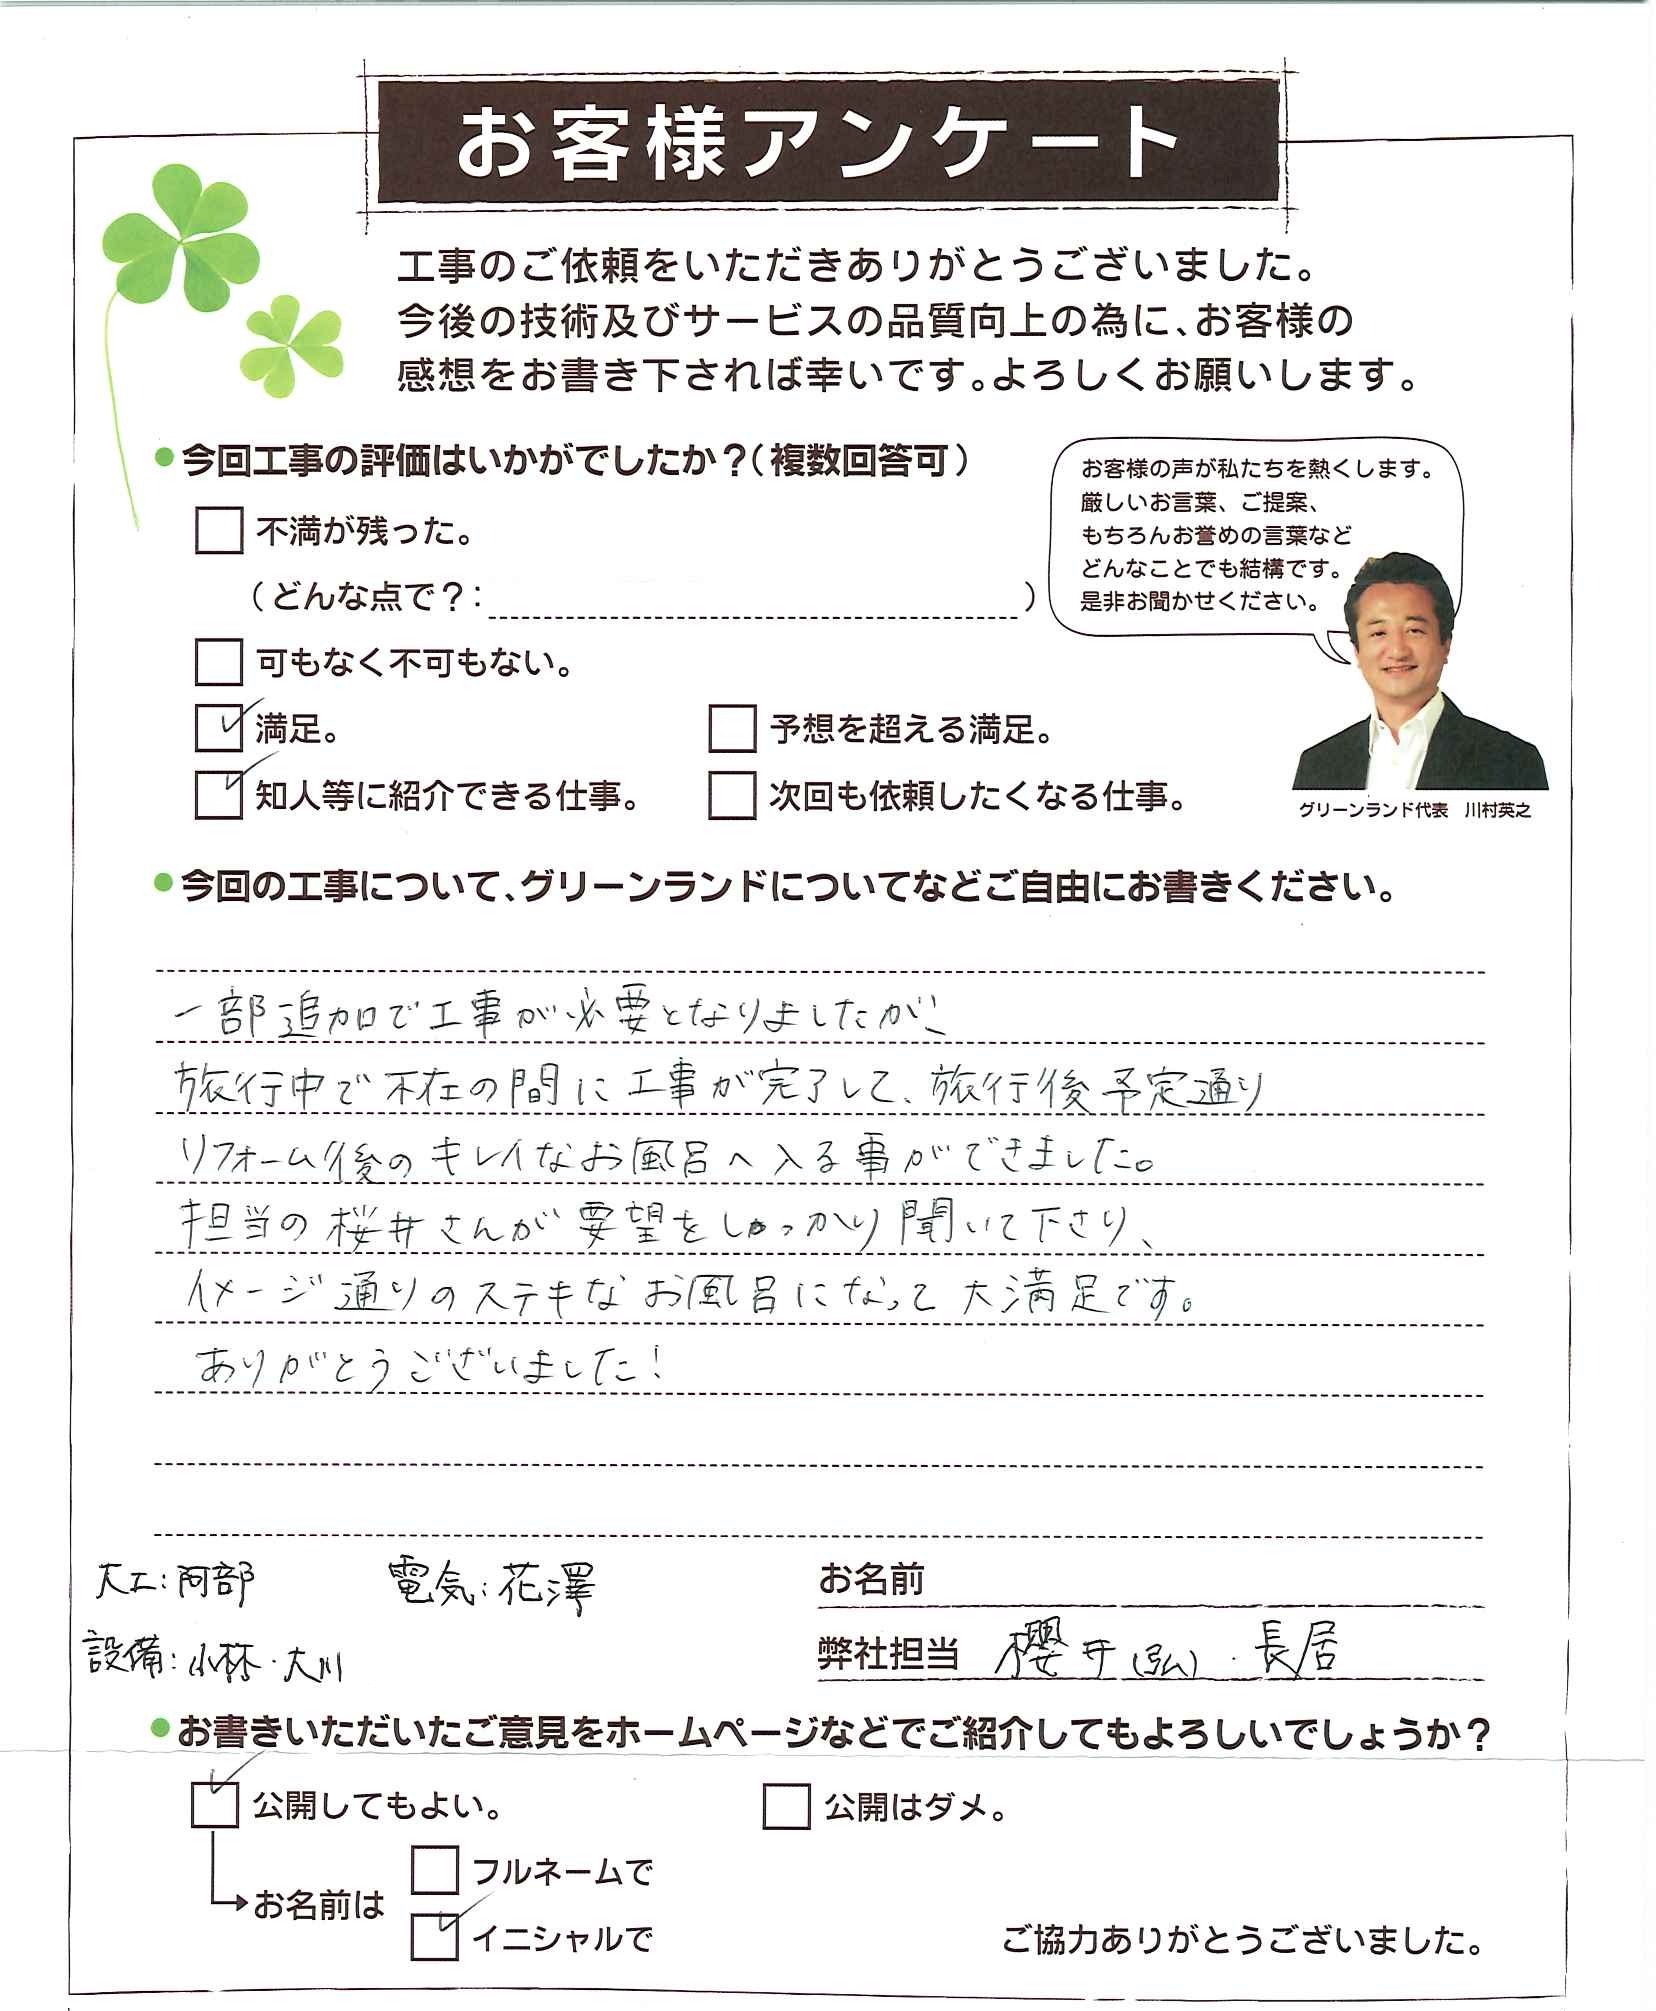 お客様アンケート
工事のご依頼をいただきありがとうございました。
今後の技術及びサービスの品質向上の為に、お客様の
感想をお書き下されば幸いです。よろしくお願いします。
●今回工事の評価はいかがでしたか？（複数回答可）
不満が残った。
（どんな点で？：　）
可もなく不可もない。
満足。
予想を超える満足。
知人等に紹介できる仕事。
次回も依頼したくなる仕事。
お客様の声が私たちを熱くします。
厳しいお言葉、ご提案、
もちろんお誉めの言葉など
どんなことでも結構です。
是非お聞かせください。
グリーンランド代表　川村英之
●今回の工事について、グリーンランドについてなどご自由にお書きください。
一部追加で工事が必要となりましたが、
旅行中で不在の間に工事が完了して、旅行後予定通り
リフォーム後のキレイなお風呂へ入る事ができました。
担当の桜井さんが要望をしっかり聞いて下さり、
イメージ通りのステキなお風呂になって大満足です。
ありがとうございました！
大工：阿部　電気：花澤
設備：小林・大川
お名前
弊社担当　櫻井（弘）・長居
●お書きいただいたご意見をホームページなどでご紹介してもよろしいでしょうか？
公開してもよい。
公開はダメ。
お名前は
フルネームで
イニシャルで
ご協力ありがとうございました。